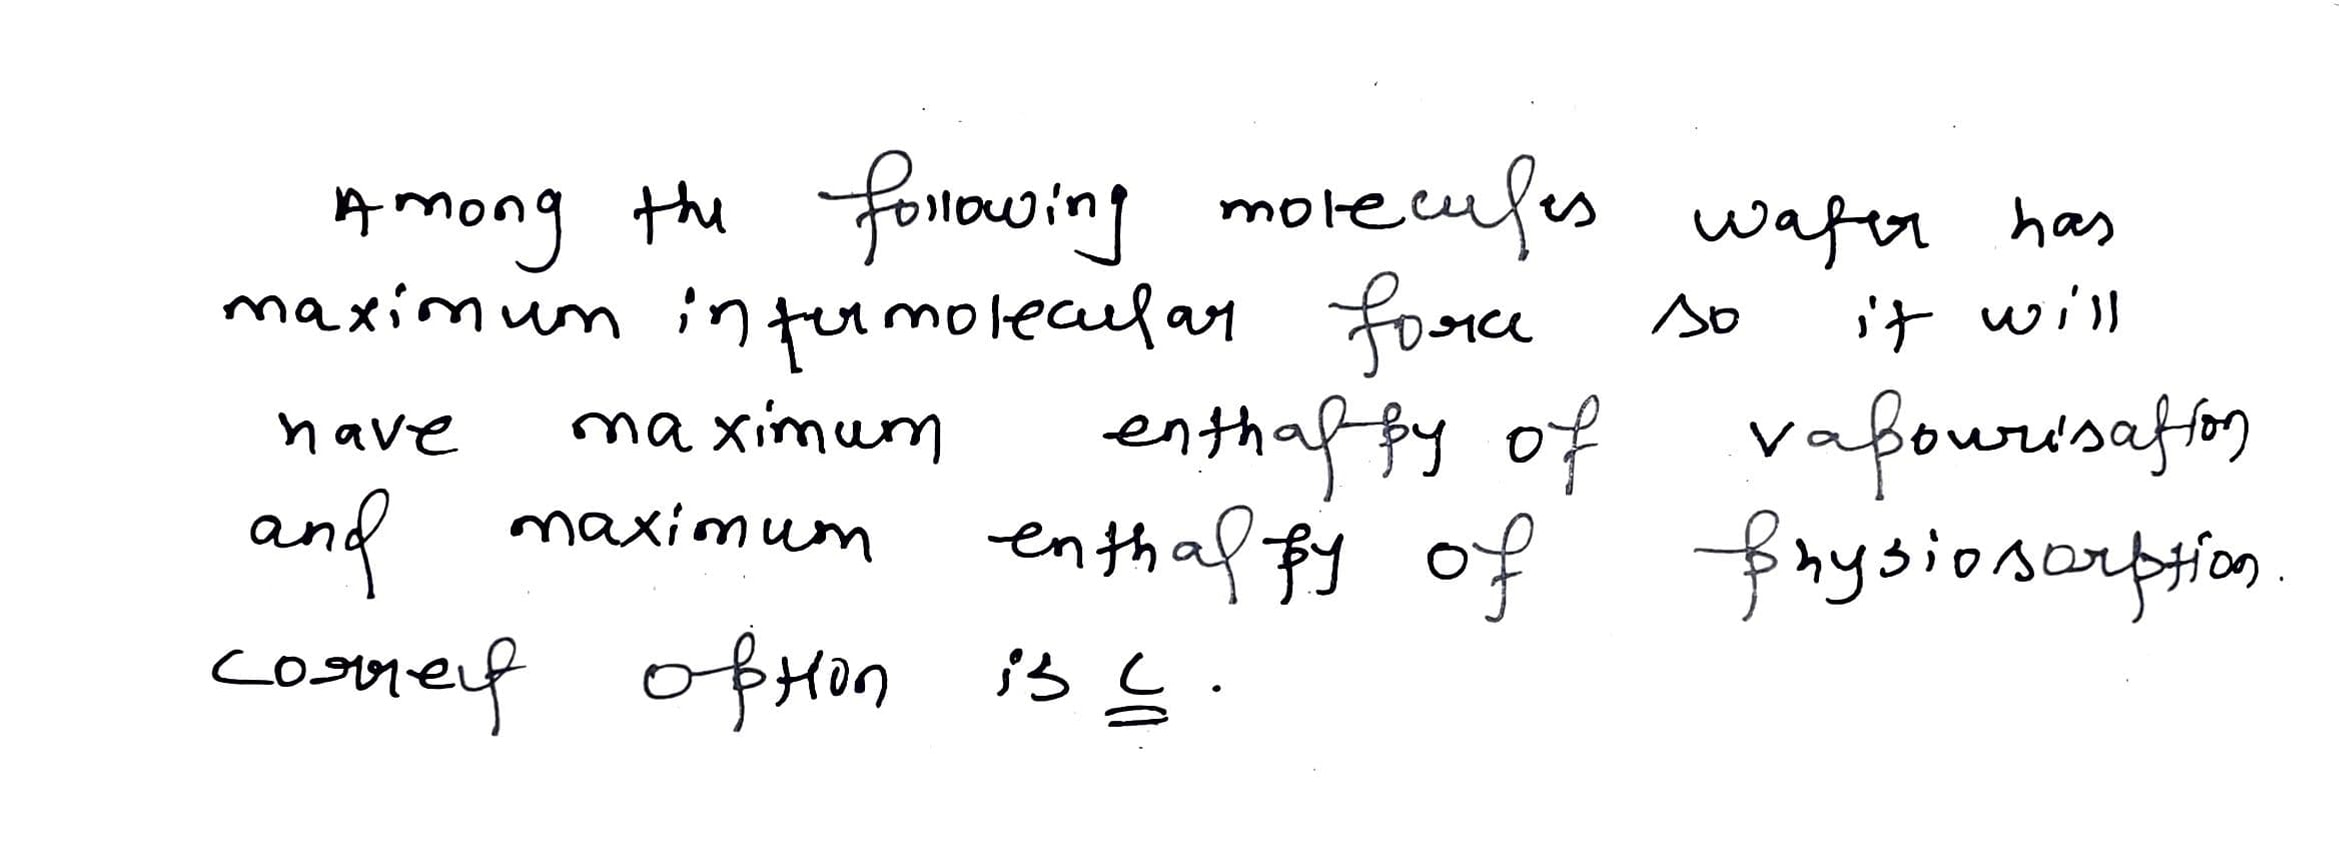 Among the following molecules water has
maximum intermolecular force so it will
have maximum enthalpy of vapourisation
and maximum enthalpy of physiosorption.
correct option is C.